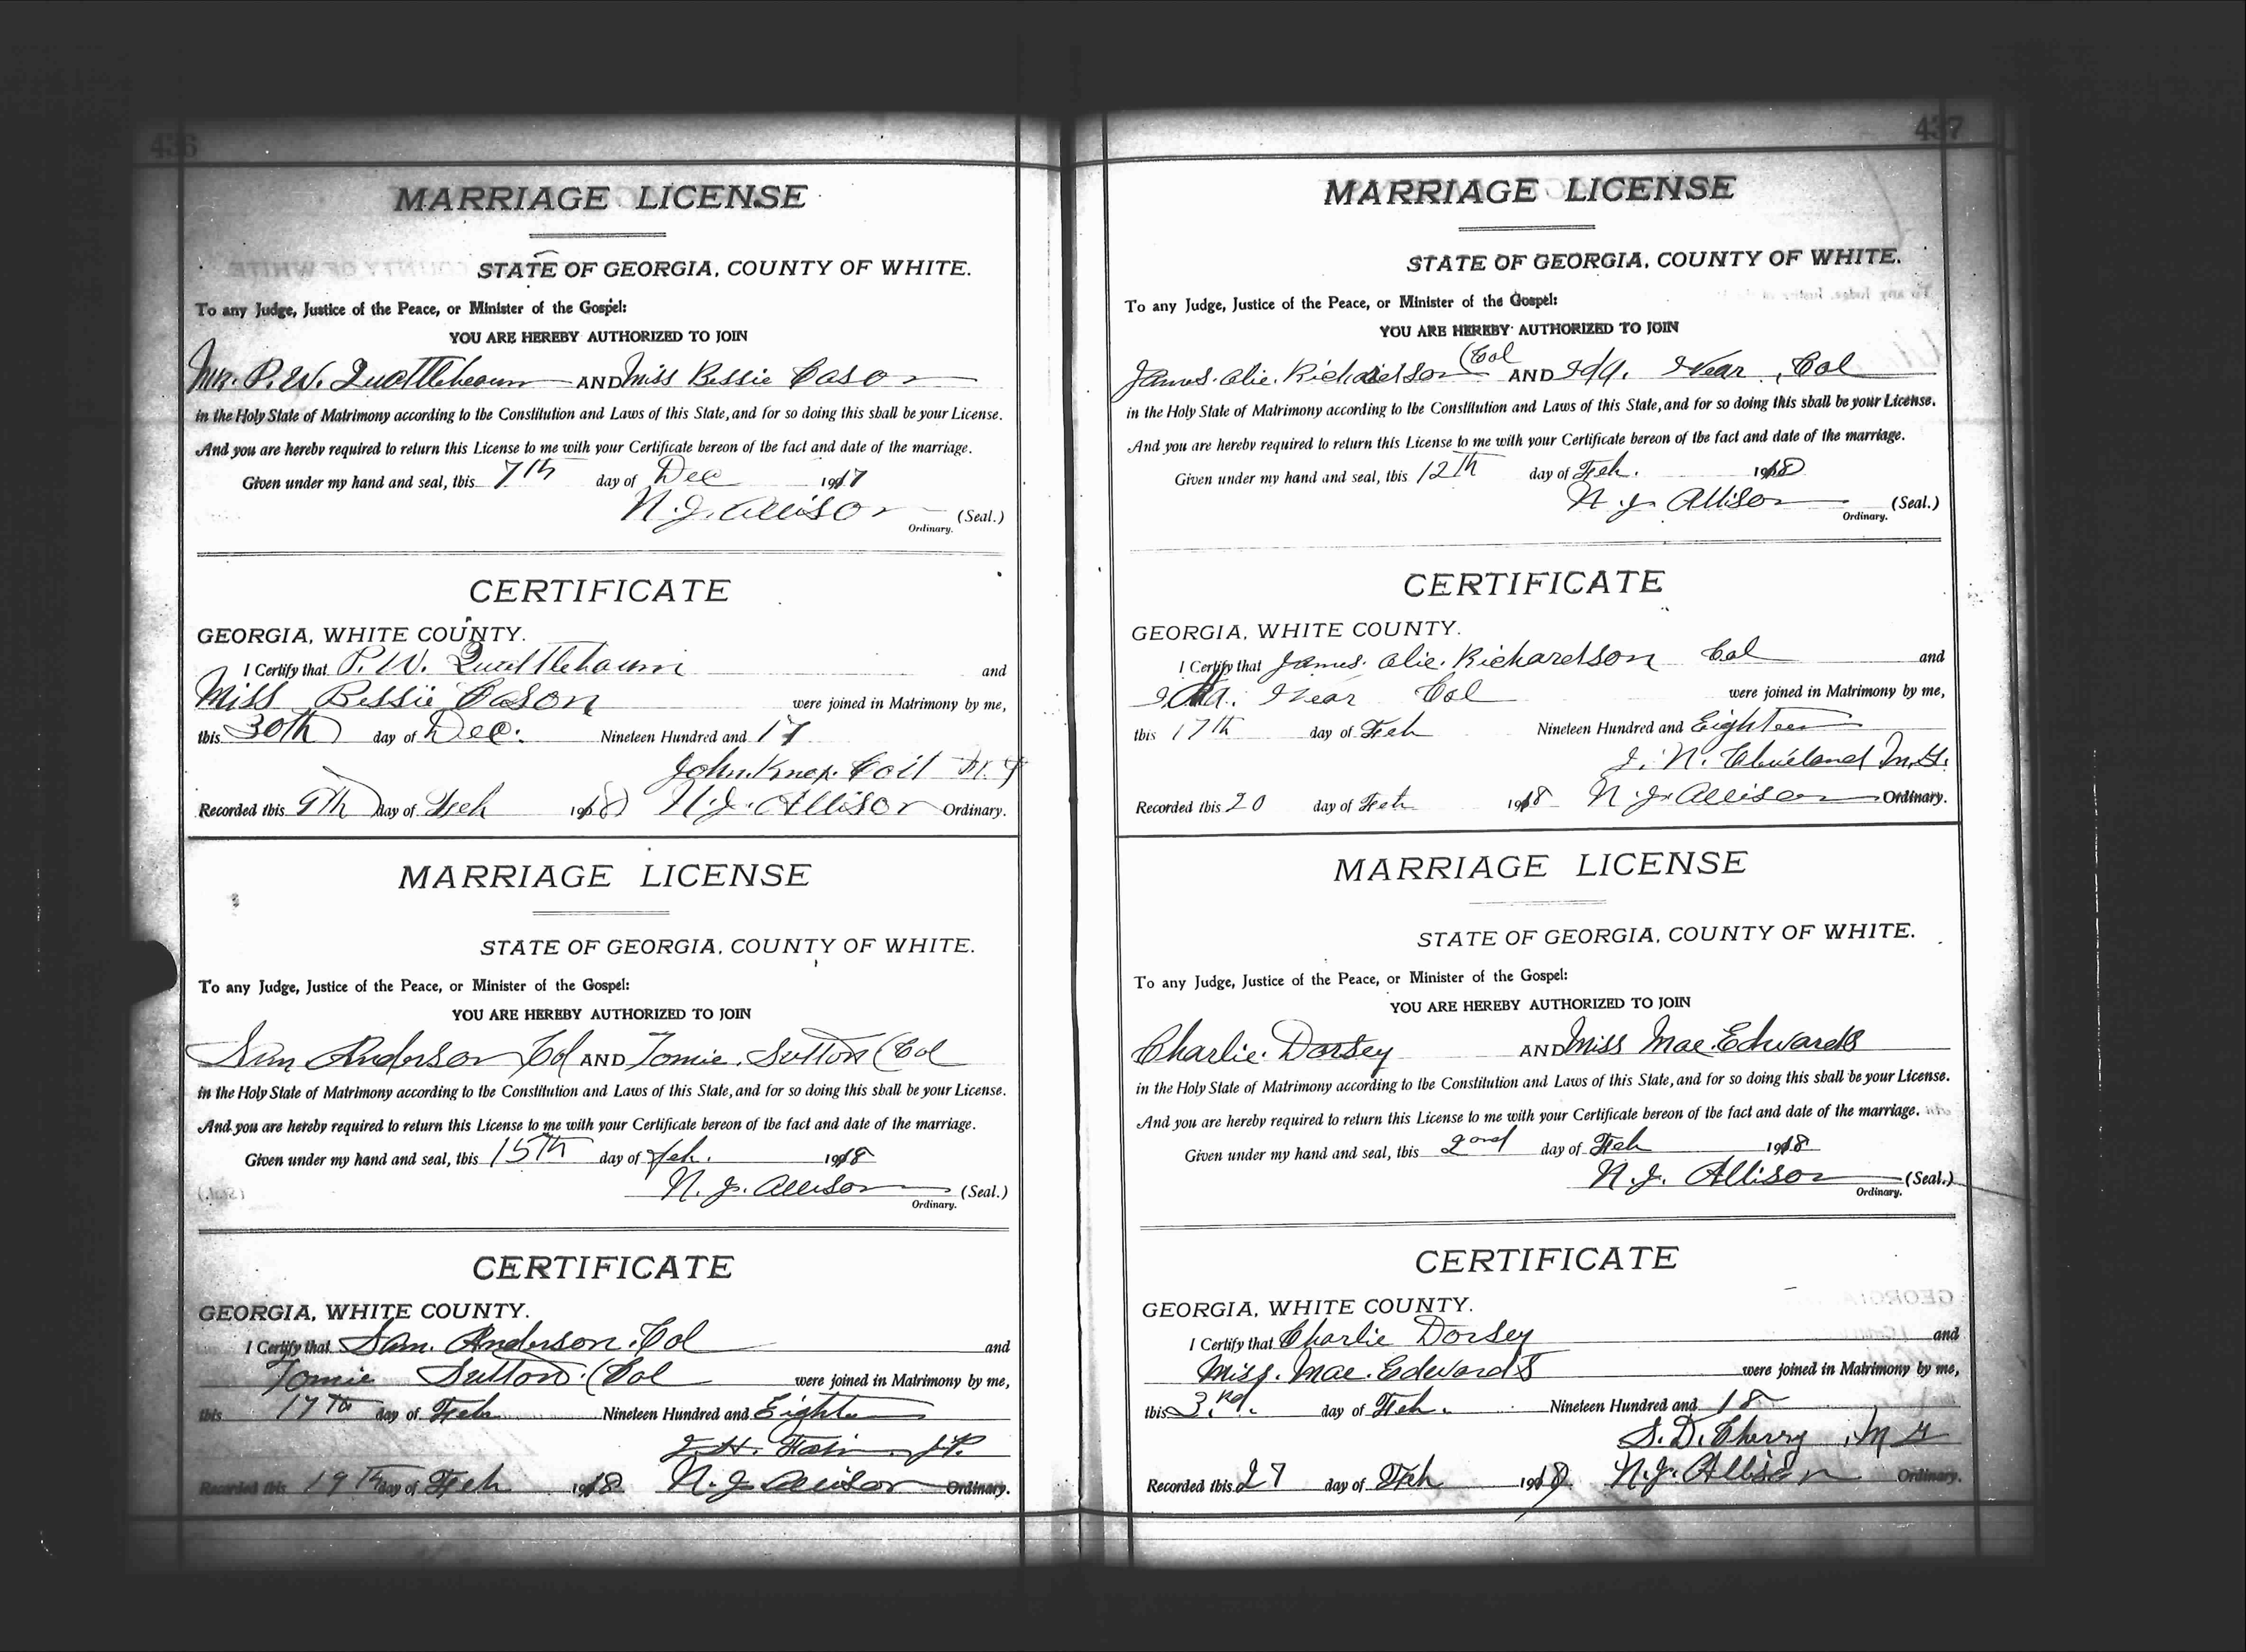 436
MARRIAGE LICENSE
STATE OF GEORGIA, COUNTY OF WHITE.
To any Judge, Justice of the Peace, or Minister of the Gospel:
YOU ARE HEREBY AUTHORIZED TO JOIN
Mr. P. W. Quattlebaum AND Miss Bessie Cason
in the Holy State of Matrimony according to the Constitution and Laws of this State, and for so doing this shall be your License.
And you are hereby required to return this License to me with your Certificate hereon of the fact and date of the marriage.
Given under my hand and seal, this 7th day of Dec 1917
N. J. Allison (Seal.)
Ordinary.
CERTIFICATE
GEORGIA, WHITE COUNTY.
I Certify that P. W. Quattlebaum and
Miss Bessie Cason were joined in Matrimony by me,
this 30th day of Dec. Nineteen Hundred and 17
John Knox Coit M. G
Recorded this 9th day of Feb 1918 N. J. Allison Ordinary.
MARRIAGE LICENSE
STATE OF GEORGIA, COUNTY OF WHITE.
To any Judge, Justice of the Peace, or Minister of the Gospel:
YOU ARE HEREBY AUTHORIZED TO JOIN
Sam Anderson Col AND Tomie. Sutton (Col
in the Holy State of Matrimony according to the Constitution and Laws of this State, and for so doing this shall be your License.
And you are hereby required to return this License to me with your Certificate hereon of the fact and date of the marriage.
Given under my hand and seal, this 15th day of Feb. 1918
N. J. Allison (Seal.)
Ordinary.
CERTIFICATE
GEORGIA, WHITE COUNTY.
I Certify that Sam. Anderson. Col and
Tomie Sutton. (Col were joined in Matrimony by me,
this 17th day of Feb Nineteen Hundred and Eighte
J. H. J.P.
Recorded this 19th day of Feb 1918 N. J. Allison Ordinary.
437
MARRIAGE LICENSE
STATE OF GEORGIA, COUNTY OF WHITE.
To any Judge, Justice of the Peace, or Minister of the Gospel:
YOU ARE HEREBY AUTHORIZED TO JOIN
James. Olie. Richardson (Col AND Ida. , Col
in the Holy State of Matrimony according to the Constitution and Laws of this State, and for so doing this shall be your License.
And you are hereby required to return this License to me with your Certificate hereon of the fact and date of the marriage.
Given under my hand and seal, this 12th day of Feb. 1918
N. J. Allison (Seal.)
Ordinary.
CERTIFICATE
GEORGIA, WHITE COUNTY.
I Certify that James. Olie. Richardson Col and
Ida. Col were joined in Matrimony by me,
this 17th day of Feb Nineteen Hundred and Eighteen
J. N. Cleveland M.G.
Recorded this 20 day of Feb 1918 N. J. Allison Ordinary.
MARRIAGE LICENSE
STATE OF GEORGIA, COUNTY OF WHITE.
To any Judge, Justice of the Peace, or Minister of the Gospel:
YOU ARE HEREBY AUTHORIZED TO JOIN
Charlie. Dorsey AND Miss Mae. Edwards
in the Holy State of Matrimony according to the Constitution and Laws of this State, and for so doing this shall be your License.
And you are hereby required to return this License to me with your Certificate hereon of the fact and date of the marriage.
Given under my hand and seal, this 2ond day of Feb 1918
N. J. Allison (Seal.)
Ordinary.
CERTIFICATE
GEORGIA, WHITE COUNTY.
I Certify that Charlie Dorsey and
Miss. Mae. Edwards were joined in Matrimony by me,
this 3.rd. day of Feb. Nineteen Hundred and 18
S. D. Cherry , M G
Recorded this 27 day of Feb 1918 N. J. Allison Ordinary.